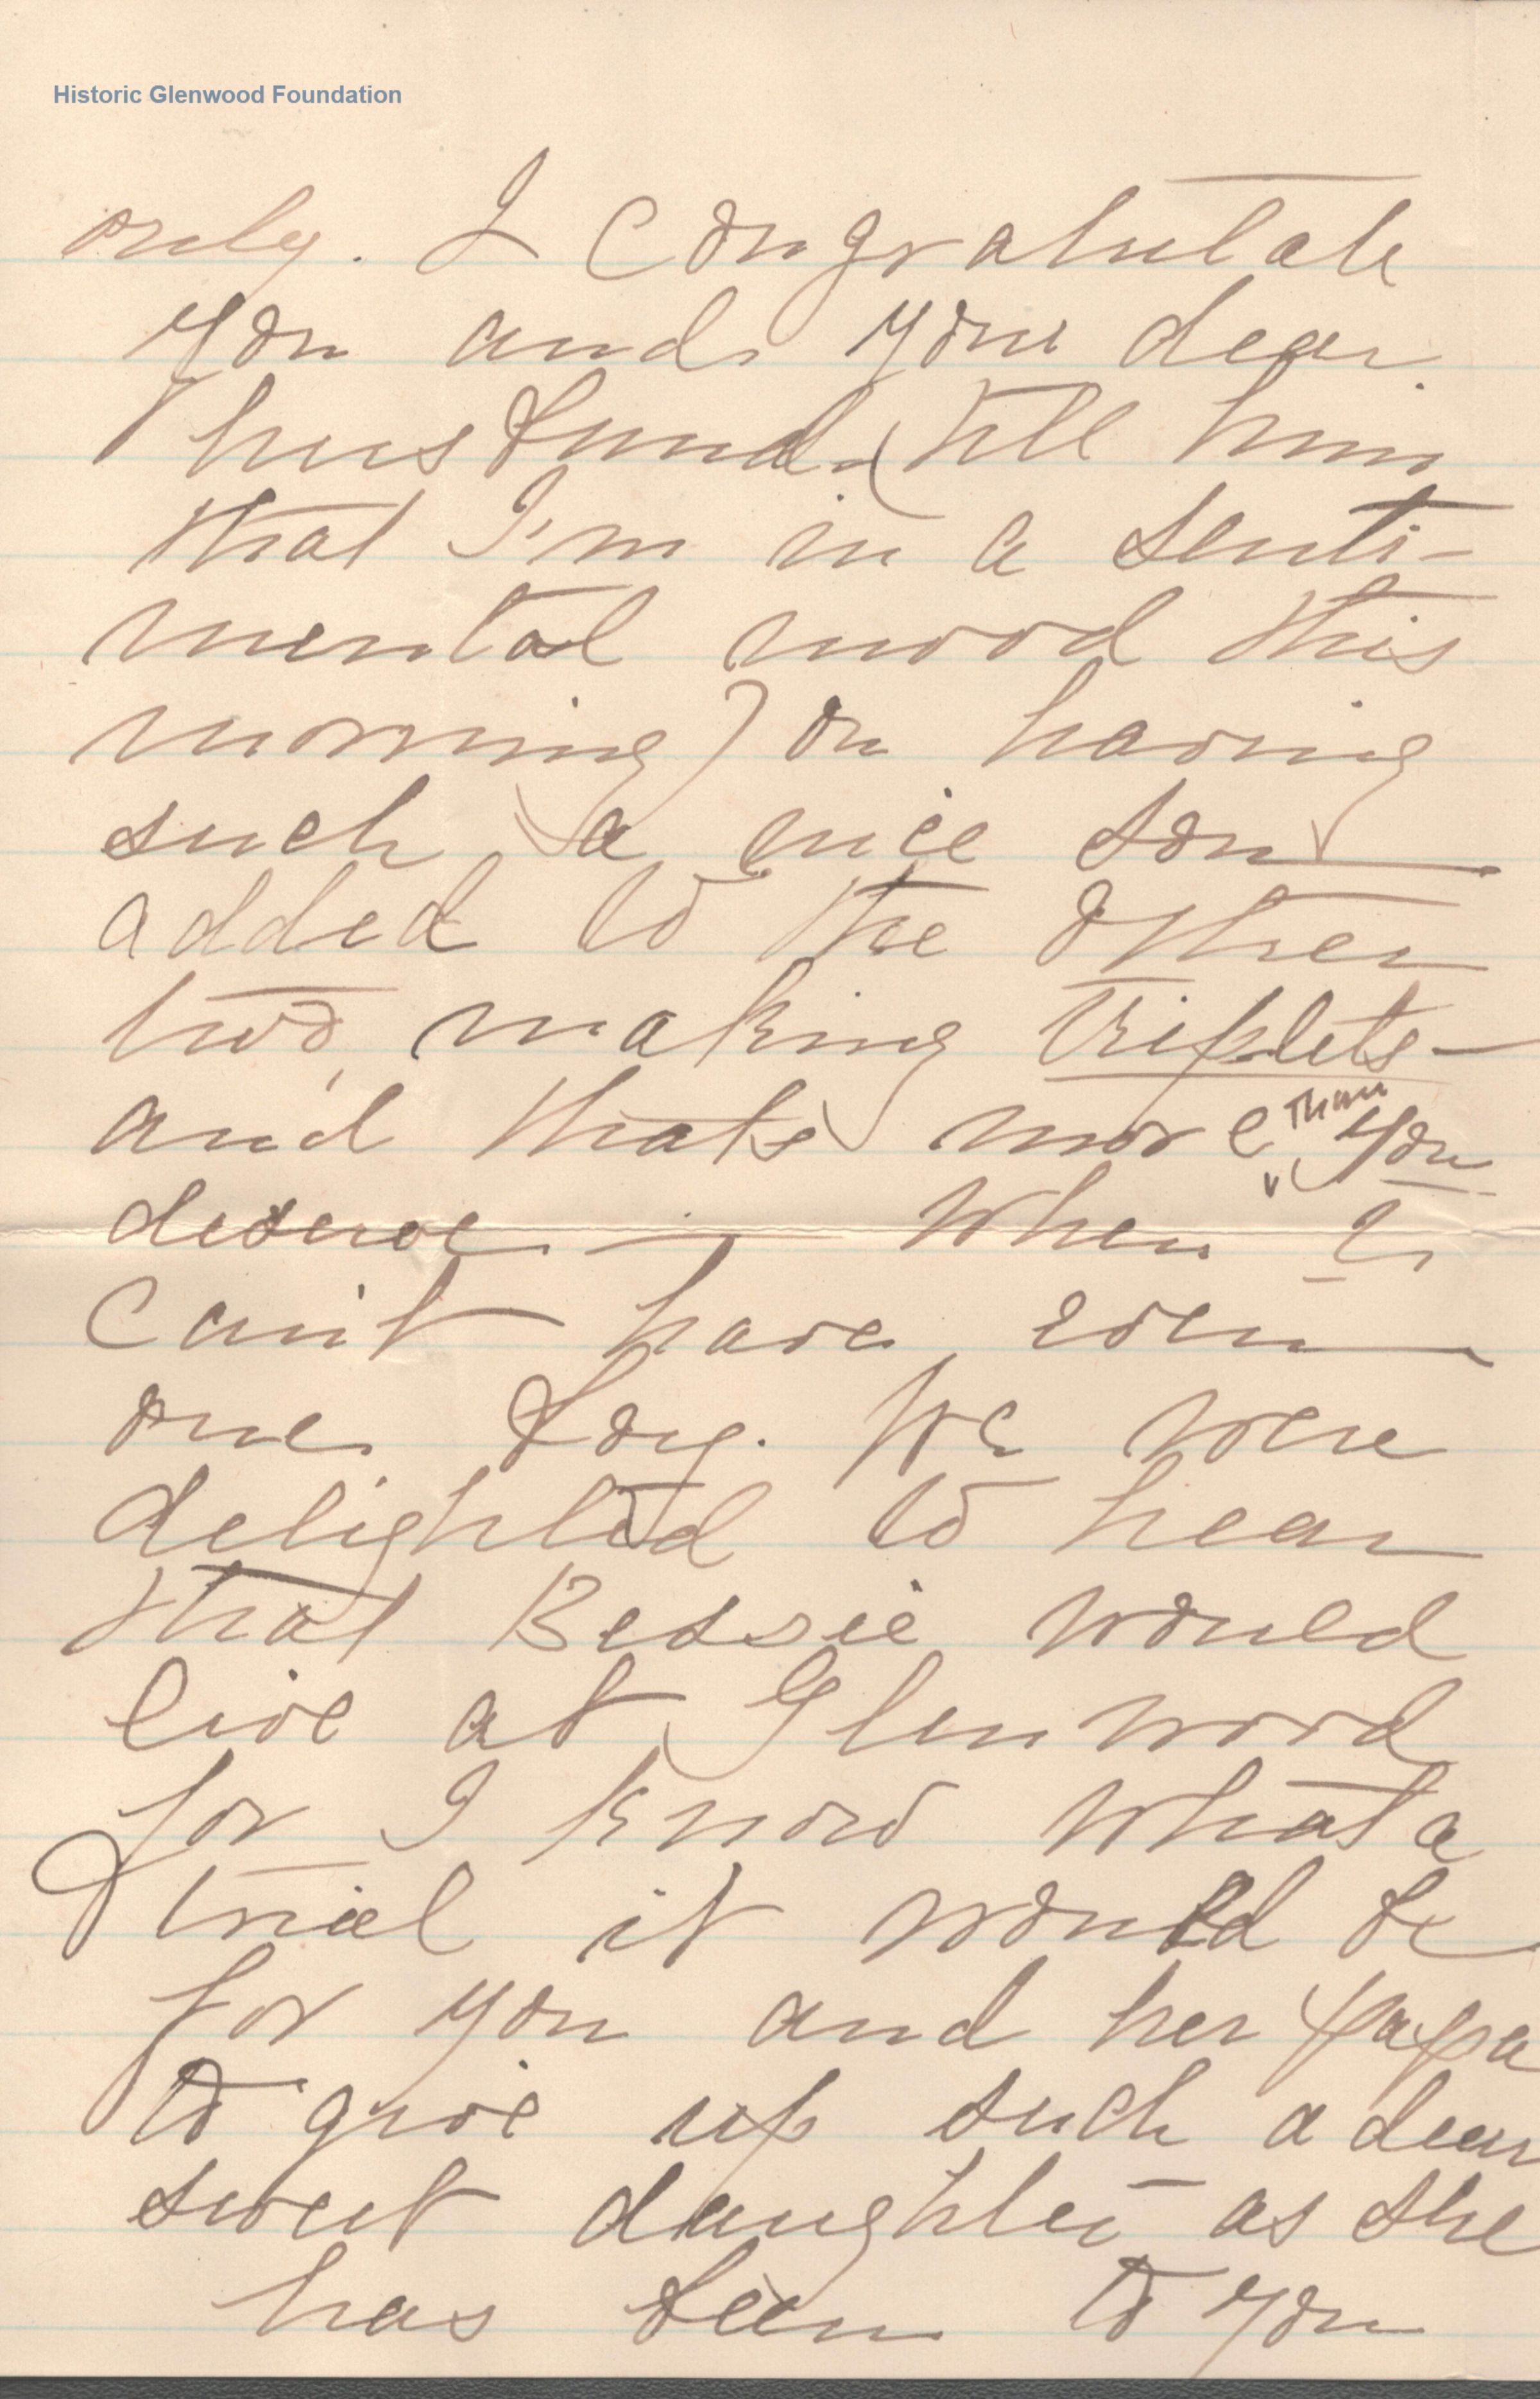 Historic Glenwood Foundation
only. I congratulate
you and your dear
husband (tell him
that I'm in a senti-
mental mood this
morning) on having
such a nice son
added to the other
two, making triplets -
and thats more than you
deserve - when
can't have even
one boy. We were
delighted to hear
that Bessie would
live at Glenwood
for I know what a
trial it would be
for you and her papa
to give up such a dear
sweet daughter as she
has been to you